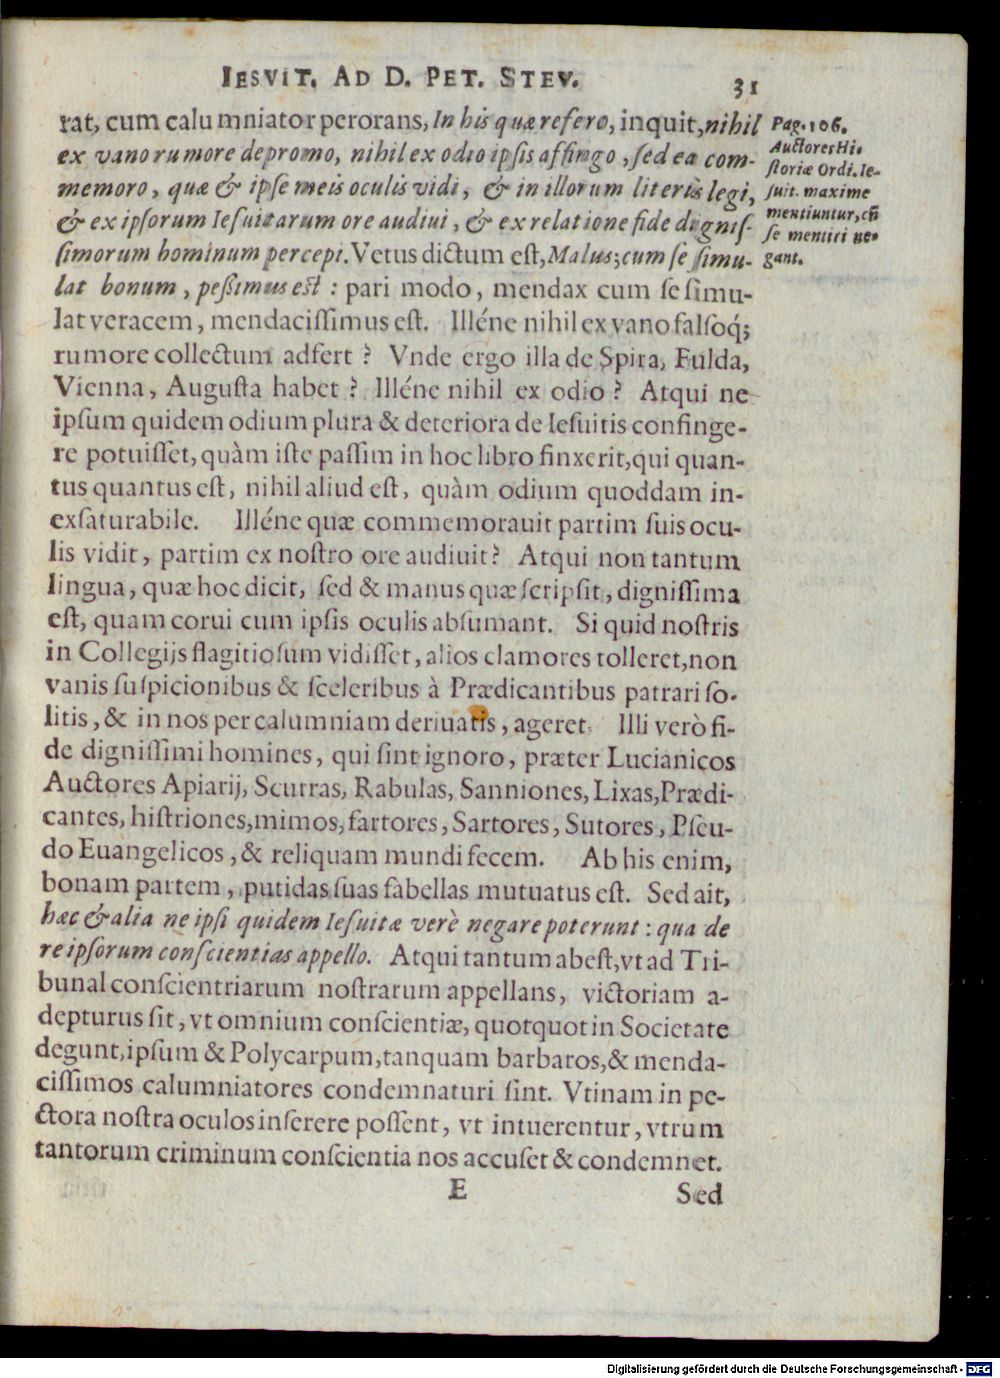 IESVIT. AD D. PET. STEV. 31
rat, cum calumniator perorans, In his quæ refero, inquit, nihil
ex vano rumore depromo, nihil ex odio ipsis affingo, sed ea com-
memoro, quæ & ipse meis oculis vidi, & in illorum literis legi,
& ex ipsorum Iesuitarum ore audiui, & ex relatione fide dignis-
simorum hominum percepi. Vetus dictum est, Malus; cum se simu-
lat bonum, peßimus est: pari modo, mendax cum se simu-
lat veracem, mendacissimus est. Illéne nihil ex vano falsoq́;
rumore collectum adfert? Vnde ergo illa de Spira, Fulda,
Vienna, Augusta habet? Illéne nihil ex odio? Atqui ne
ipsum quidem odium plura & deteriora de Iesuitis confinge-
re potuisset, quàm iste passim in hoc libro finxerit, qui quan-
tus quantus est, nihil aliud est, quàm odium quoddam in-
exsaturabile. Illéne quæ commemorauit partim suis ocu-
lis vidit, partim ex nostro ore audiuit? Atqui non tantum
lingua, quæ hoc dicit, sed & manus quæ scripsit, dignissima
est, quam corui cum ipsis oculis absumant. Si quid nostris
in Collegijs flagitiosum vidisset, alios clamores tolleret, non
vanis suspicionibus & sceleribus à Prædicantibus patrari so-
litis, & in nos per calumniam deriuatis, ageret. Illi verò fi-
de dignissimi homines, qui sint ignoro, præter Lucianicos
Auctores Apiarij, Scurras, Rabulas, Sanniones, Lixas, Prædi-
cantes, histriones, mimos, fartores, Sartores, Sutores, Pseu-
do Euangelicos, & reliquam mundi fecem. Ab his enim,
bonam partem, putidas suas fabellas mutuatus est. Sed ait,
hæc & alia ne ipsi quidem Iesuitæ verè negare poterunt: qua de
re ipsorum conscientias appello. Atqui tantum abest, vt ad Tri-
bunal conscientriarum nostrarum appellans, victoriam a-
depturus sit, vt omnium conscientiæ, quotquot in Societate
degunt, ipsum & Polycarpum, tanquam barbaros, & menda-
cissimos calumniatores condemnaturi sint. Vtinam in pe-
ctora nostra oculos inserere possent, vt intuerentur, vtrum
tantorum criminum conscientia nos accuset & condemnet.
E Sed
Pag. 106.
Auctores Hi-
storiæ Ordi. Ie-
suit. maxime
mentiuntur, cũ
se mentiri ne-
gant.
Digitalisierung gefördert durch die Deutsche Forschungsgemeinschaft - DFG